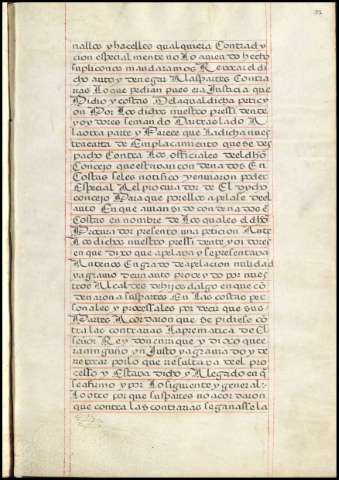 nalleo y hacelleo qualquiera Contrady
cion especial mente no Lo auiendo hecho
suplico nos mandaramos Reuocar el di
cho auto y denegar A las partes Contra
rias Lo que pedian pues era Justicia que
Pidio y costas De la qual dicha peticy
on Por Los dichos nuestro pressidente
yoydores se mando Dar traslado A
La otra parte y Parece que La dicha nues
tra carta de Emplacamiento que se des
pacho Contra Los officiales del dho
Concejo que estauan condenados En
Costas se les notifico y enuiaron poder
Especial Al procurador de El dycho
concejo Para que por ellos apelase del
auto En que auian sido condenados En
Costas en nombre de Los quales el dho
Procurador presento una peticion Ante
Los dichos nuestro pressidente y oydores
en que dixo que apelaua y se presentaua
Ante nos En grado de apelacion nulidad
y agrauio de un auto proueydo por nues
tros Alcaldes de hijos dalgo en que co
denaron a sus partes En Las costas per
sonales y processales por decir que sus
Partes Acordaron que se pidiese co
tra las contrarias La prematica de El
señor Rey don enrrique y dixo que
era ninguno yn Justo y agrauiado y de
reuocar por lo que resultaua del pro
cesso y Estaua dicho y Alegado en q
se afirmo y por Lo siguiente y general:
Lo otro por que sus partes no acordaron
que contra las contrarias se ganasse la